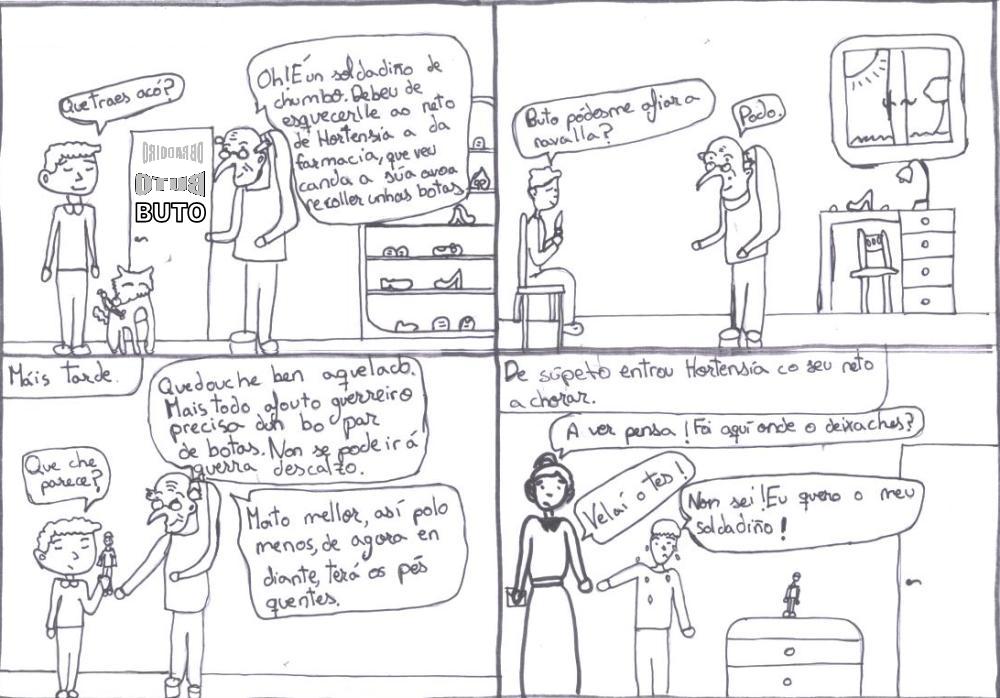 Que traes acó?
Oh! É un soldadiño de
chumbo. Debeu de
esquecerlle ao neto
de Hortensia a da
farmacia, que veu
canda a súa avoa
recoller unhas botas.
OBRADOIRO
BUTO
BUTO
Buto pódesme afiar a
navalla?
Podo.
Máis tarde.
Quedouche ben aquelado.
Mais todo afouto guerreiro
precisa dun bo par
de botas. Non se pode ir á
guerra descalzo.
Que che
parece?
Moito mellor, así polo
menos, de agora en
diante, terá os pés
quentes.
De súpeto entrou Hortensia co seu neto
a chorar.
A ver pensa! Foi aquí onde o deixaches?
Velaí o tes!
Non sei! Eu quero o meu
soldadiño!